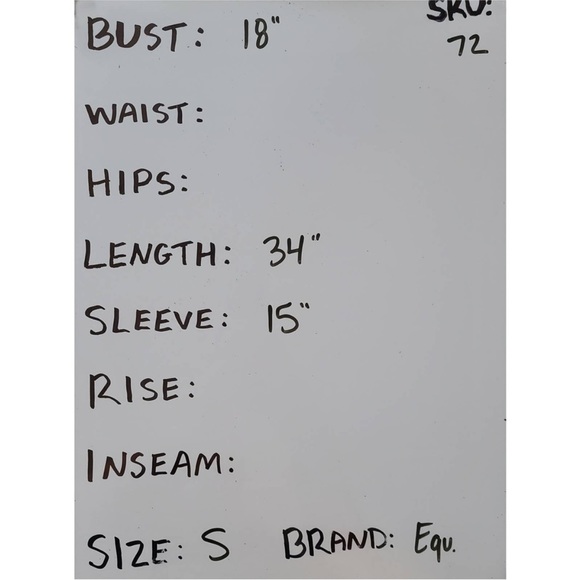 BUST: 18" SKU:
72
WAIST:
HIPS:
LENGTH: 34"
SLEEVE: 15"
RISE:
INSEAM:
SIZE: S BRAND: Equ.